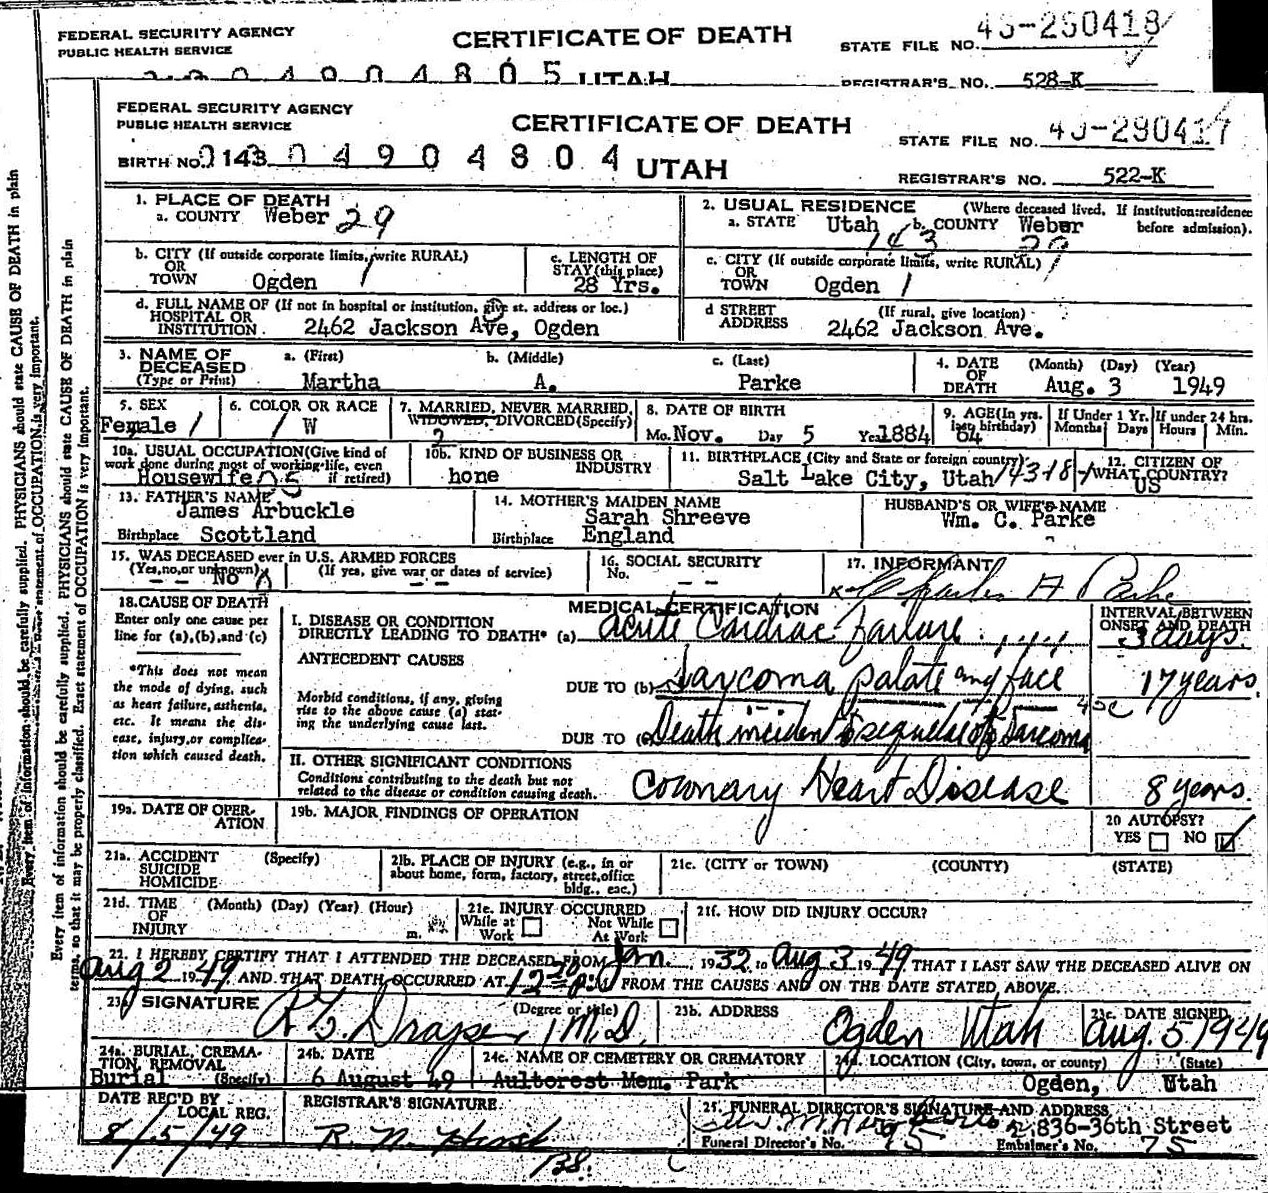 FEDERAL SECURITY AGENCY
PUBLIC HEALTH SERVICE
CERTIFICATE OF DEATH
STATE FILE NO.
UTAH
REGISTRAR'S NO. 528-K
FEDERAL SECURITY AGENCY
PUBLIC HEALTH SERVICE
CERTIFICATE OF DEATH
STATE FILE NO.
BIRTH NO. 143 04904804 UTAH
REGISTRAR'S NO. 522-K
Every item of information should be carefully supplied. PHYSICIANS should state CAUSE OF DEATH in plain
terms, so that it may be properly classified. Exact statement of OCCUPATION is very important.
1. PLACE OF DEATH
a. COUNTY Weber 29
2. USUAL RESIDENCE (Where deceased lived. If institution:residence before admission).
a. STATE Utah b. COUNTY Weber
143
b. CITY (If outside corporate limits, write RURAL)
OR
TOWN Ogden 1
c. LENGTH OF
STAY (this place)
28 Yrs.
c. CITY (If outside corporate limits, write RURAL)
OR
TOWN Ogden 1
d. FULL NAME OF (If not in hospital or institution, give st. address or loc.)
HOSPITAL OR
INSTITUTION 2462 Jackson Ave, Ogden
d STREET (If rural, give location)
ADDRESS 2462 Jackson Ave.
3. NAME OF a. (First) b. (Middle) c. (Last)
DECEASED
(Type or Print) Martha A. Parke
4. DATE (Month) (Day) (Year)
OF
DEATH Aug. 3 1949
5. SEX
Female 1
6. COLOR OR RACE
1 W
7. MARRIED, NEVER MARRIED,
WIDOWED, DIVORCED(Specify)
2
8. DATE OF BIRTH
Mo. Nov. Day 5 Yr. 1884
9. AGE(In yrs.
last birthday)
64
If Under 1 Yr. If under 24 hrs.
Months Days Hours Min.
10a. USUAL OCCUPATION(Give kind of
work done during most of working life, even
if retired)
Housewife
10b. KIND OF BUSINESS OR
INDUSTRY
hone
11. BIRTHPLACE (City and State or foreign country)
Salt Lake City, Utah
12. CITIZEN OF
WHAT COUNTRY?
US
13. FATHER'S NAME
James Arbuckle
Birthplace Scottland
14. MOTHER'S MAIDEN NAME
Sarah Shreeve
Birthplace England
HUSBAND'S OR WIFE'S NAME
Wm. C. Parke
15. WAS DECEASED ever in U.S. ARMED FORCES
(Yes, no, or unknown) (If yes, give war or dates of service)
No
16. SOCIAL SECURITY
No. - -
17. INFORMANT
x Charles A Parke
18. CAUSE OF DEATH
Enter only one cause per
line for (a), (b), and (c)
*This does not mean
the mode of dying, such
as heart failure, asthenia,
etc. It means the dis-
ease, injury, or complica-
tion which caused death.
MEDICAL CERTIFICATION
INTERVAL BETWEEN
ONSET AND DEATH
I. DISEASE OR CONDITION
DIRECTLY LEADING TO DEATH* (a) Acute Cardiac Failure 3 days.
ANTECEDENT CAUSES
Morbid conditions, if any, giving
rise to the above cause (a) stat-
ing the underlying cause last.
DUE TO (b) Sarcoma palate and face 17 years
DUE TO (c) Death incident to sequelae of Sarcoma
II. OTHER SIGNIFICANT CONDITIONS
Conditions contributing to the death but not
related to the disease or condition causing death.
Coronary Heart Disease 8 years.
19a. DATE OF OPER-
ATION
19b. MAJOR FINDINGS OF OPERATION
20 AUTOPSY?
YES NO
21a. ACCIDENT (Specify)
SUICIDE
HOMICIDE
21b. PLACE OF INJURY (e.g., in or
about home, form, factory, street, office
bldg., eac.)
21c. (CITY or TOWN) (COUNTY) (STATE)
21d. TIME (Month) (Day) (Year) (Hour)
OF
INJURY m.
21e. INJURY OCCURRED
While at Work
Not While At Work
21f. HOW DID INJURY OCCUR?
22. I HEREBY CERTIFY THAT I ATTENDED THE DECEASED FROM Jan. 1932 to Aug 3 1949 THAT I LAST SAW THE DECEASED ALIVE ON
Aug 2 1949 AND THAT DEATH OCCURRED AT FROM THE CAUSES AND ON THE DATE STATED ABOVE.
23a SIGNATURE (Degree or title)
Draper, M.D.
23b. ADDRESS
Ogden Utah
23c. DATE SIGNED
Aug. 5 1949
24a. BURIAL, CREMA-
TION, REMOVAL
Burial (Specify)
24b. DATE
6 August 49
24c. NAME OF CEMETERY OR CREMATORY
Aultorest Mem. Park
24d. LOCATION (City, town, or county) (State)
Ogden, Utah
DATE REC'D BY
LOCAL REG.
8/5/49
REGISTRAR'S SIGNATURE
138.
25. FUNERAL DIRECTOR'S SIGNATURE AND ADDRESS
836-36th Street
Funeral Director's No. 95 Embalmer's No. 75